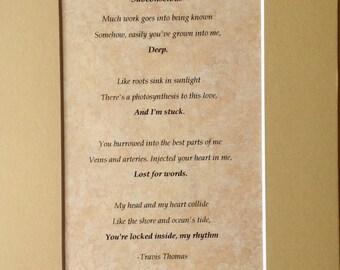 Subconscious
Much work goes into being known
Somehow, easily you've grown into me,
Deep.
Like roots sink in sunlight
There's a photosynthesis to this love,
And I'm stuck.
You burrowed into the best parts of me
Veins and arteries. Injected your heart in me,
Lost for words.
My head and my heart collide
Like the shore and ocean's tide,
You're locked inside, my rhythm
-Travis Thomas